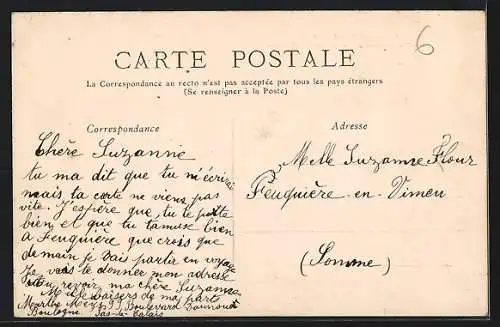 6
CARTE POSTALE
La Correspondance au recto n'est pas acceptée par tous les pays étrangers
(Se renseigner à la Poste)
Correspondance
Adresse
Chère Suzanne
tu ma dit que tu m'écrirai
mais ta carte ne viens pas
vite. J'espère que tu te porte
bien et que tu tamuse bien
a Feuquière que crois que
demain je vais partir en voyage
Je vais te donner mon adresse
au revoir ma chère Suzanne
Mille baisers de ma part
Boulevard
Boulogne Pas-de-Calais
Melle Suzanne Flour
Feuquière-en-Vimeu
(Somme)